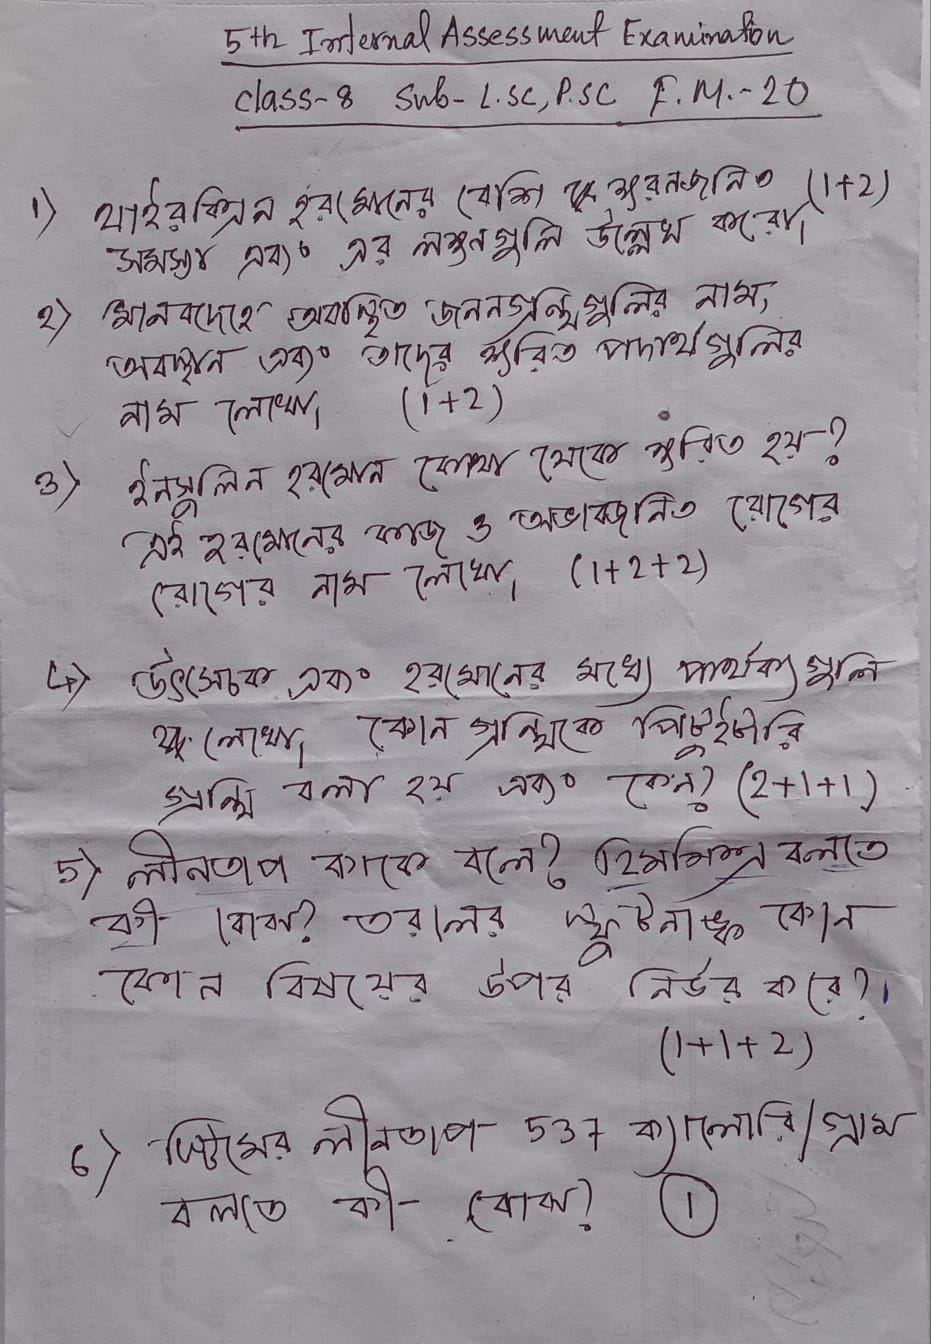 5th Internal Assessment Examination
class-8 Sub- L.SC, P.SC F.M.-20
1) থাইরক্সিন হরমোনের বেশি ক্ষরনজনিত (1+2)
সমস্যা এবং এর লক্ষনগুলি উল্লেখ করো।
২) মানবদেহে অবস্থিত জননগ্রন্থিগুলির নাম,
অবস্থান এবং তাদের ক্ষরিত পদার্থগুলির
নাম লেখো। (1+2)
3) ইনসুলিন হরমোন কোথা থেকে ক্ষরিত হয়?
এই হরমোনের কাজ ও অভাবজনিত রোগের
রোগের নাম লেখো। (1+2+2)
4) উৎসেচক এবং হরমোনের মধ্যে পার্থক্যগুলি
লেখো। কোন গ্রন্থিকে পিটুইটারি
গ্রন্থি বলা হয় এবং কেন? (2+1+1)
5) লীনতাপ কাকে বলে? হিমমিশ্রন বলতে
কী বোঝ? তরলের স্ফুটনাঙ্ক কোন
কোন বিষয়ের উপর নির্ভর করে?
(1+1+2)
6) স্টিমের লীনতাপ 537 ক্যালোরি/গ্রাম
বলতে কী বোঝ? 1